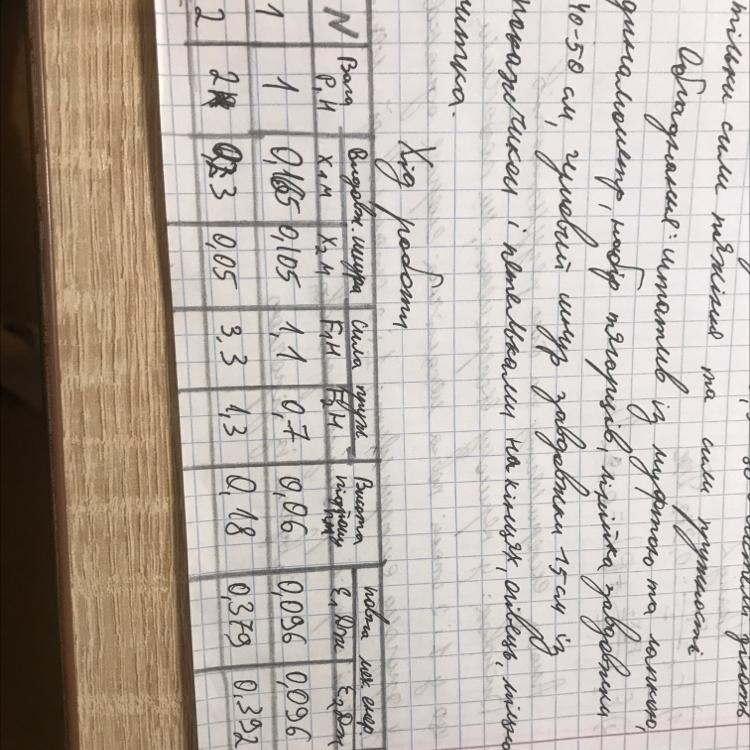 тільки сили тяжіння та сили пружності
Обладнання: штатив із муфтою та лапкою,
динамометр, набір тягарців, лінійка завдовжки
40-50 см, гумовий шнур завдовжки 15 см із
покажчиком і петельками на кінцях, олівець, міцна
нитка.
Хід роботи
N Вага Р,Н Видовж. шнура X₁м X₂м Сила пруж. F₁Н F₂Н Висота підйому hм повна мех. енер. E₁Дж E₂Дж
1 1 0,165 0,105 1,1 0,7 0,06 0,096 0,096
2 2 0,23 0,05 3,3 1,3 0,18 0,379 0,392